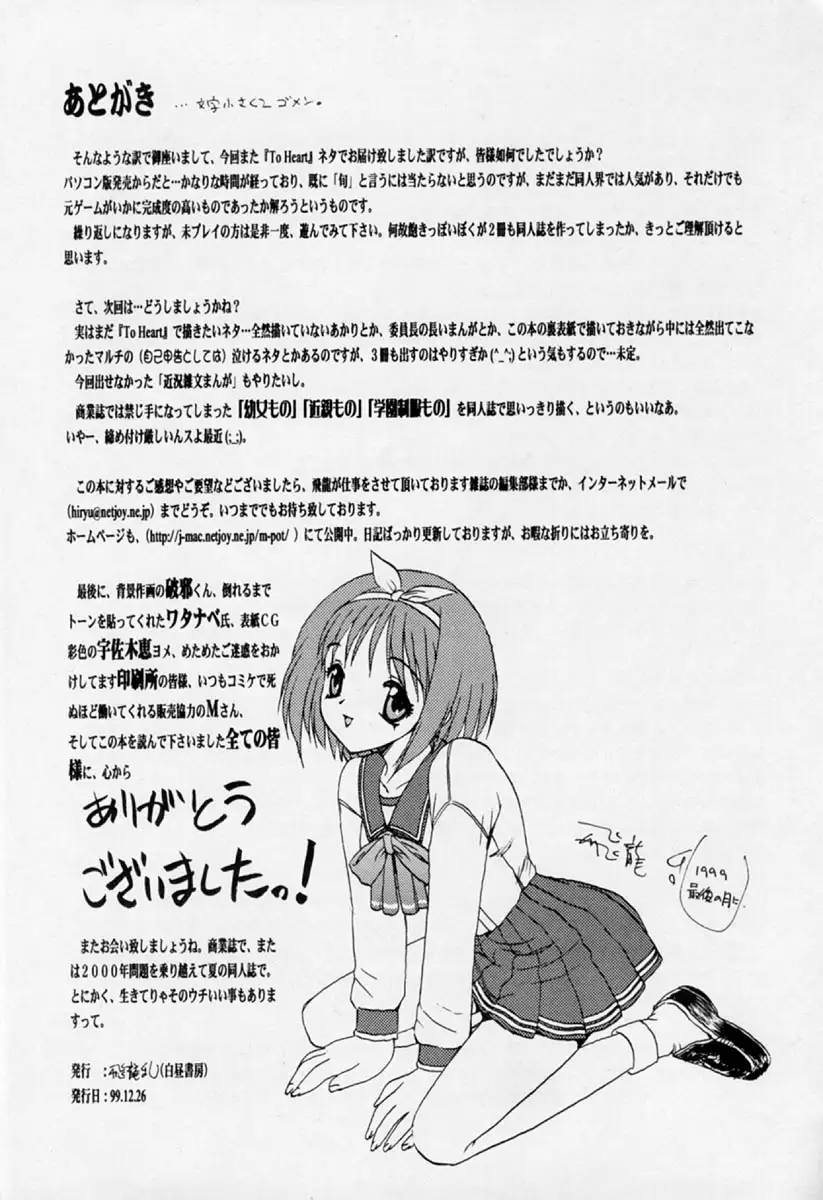 あとがき …文字小さくてゴメン。
そんなような訳で御座いまして、今回また『To Heart』ネタでお届け致しました訳ですが、皆様如何でしたでしょうか?
パソコン版発売からだと…かなりな時間が経っており、既に「旬」と言うには当たらないと思うのですが、まだまだ同人界では人気があり、それだけでも
元ゲームがいかに完成度の高いものであったか解ろうというものです。
繰り返しになりますが、未プレイの方は是非一度、遊んでみて下さい。何故飽きっぽいぼくが2冊も同人誌を作ってしまったか、きっとご理解頂けると
思います。
さて、次回は…どうしましょうかね?
実はまだ『To Heart』で描きたいネタ…全然描いていないあかりとか、委員長の長いまんがとか、この本の裏表紙で描いておきながら中には全然出てこな
かったマルチの(自己申告としては)泣けるネタとかあるのですが、3冊も出すのはやりすぎか(^_^;)という気もするので…未定。
今回出せなかった「近況雑文まんが」もやりたいし。
商業誌では禁じ手になってしまった「幼女もの」「近親もの」「学園制服もの」を同人誌で思いっきり描く、というのもいいなあ。
いやー、締め付け厳しいんスよ最近(;_;)。
この本に対するご感想やご要望などございましたら、飛龍が仕事をさせて頂いております雑誌の編集部様までか、インターネットメールで
(hiryu@netjoy.ne.jp)までどうぞ。いつまででもお待ち致しております。
ホームページも、(http://j-mac.netjoy.ne.jp/m-pot/ )にて公開中。日記ばっかり更新しておりますが、お暇な折りにはお立ち寄りを。
最後に、背景作画の破邪くん、倒れるまで
トーンを貼ってくれたワタナベ氏、表紙CG
彩色の宇佐木恵ヨメ、めためたご迷惑をおか
けしてます印刷所の皆様、いつもコミケで死
ぬほど働いてくれる販売協力のMさん、
そしてこの本を読んで下さいました全ての皆
様に、心から
ありがとう
ございましたっ!
飛龍
1999
最後の月に
またお会い致しましょうね。商業誌で、また
は2000年問題を乗り越えて夏の同人誌で。
とにかく、生きてりゃそのウチいい事もありま
すって。
発行 :飛龍乱(白昼書房)
発行日:99.12.26